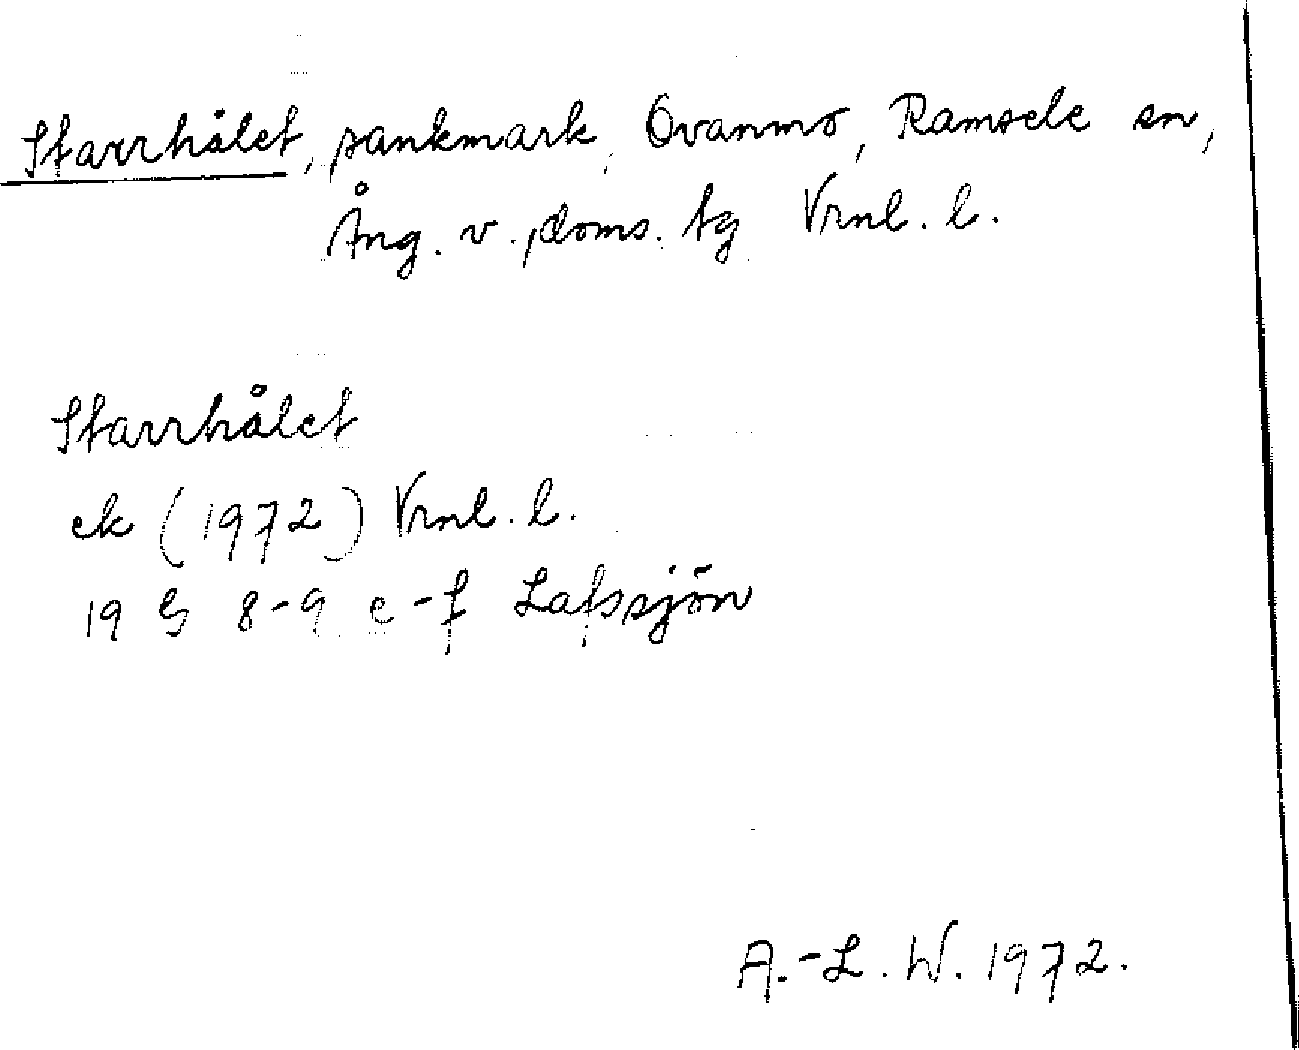 Starrhålet, sankmark, Ovanmo, Ramsele sn,
Ång. v. doms. tg Vrnl. l.
Starrhålet
ek (1972) Vrnl. l.
19 G 8-9 e-f Lafssjön
A.-L. W. 1972.